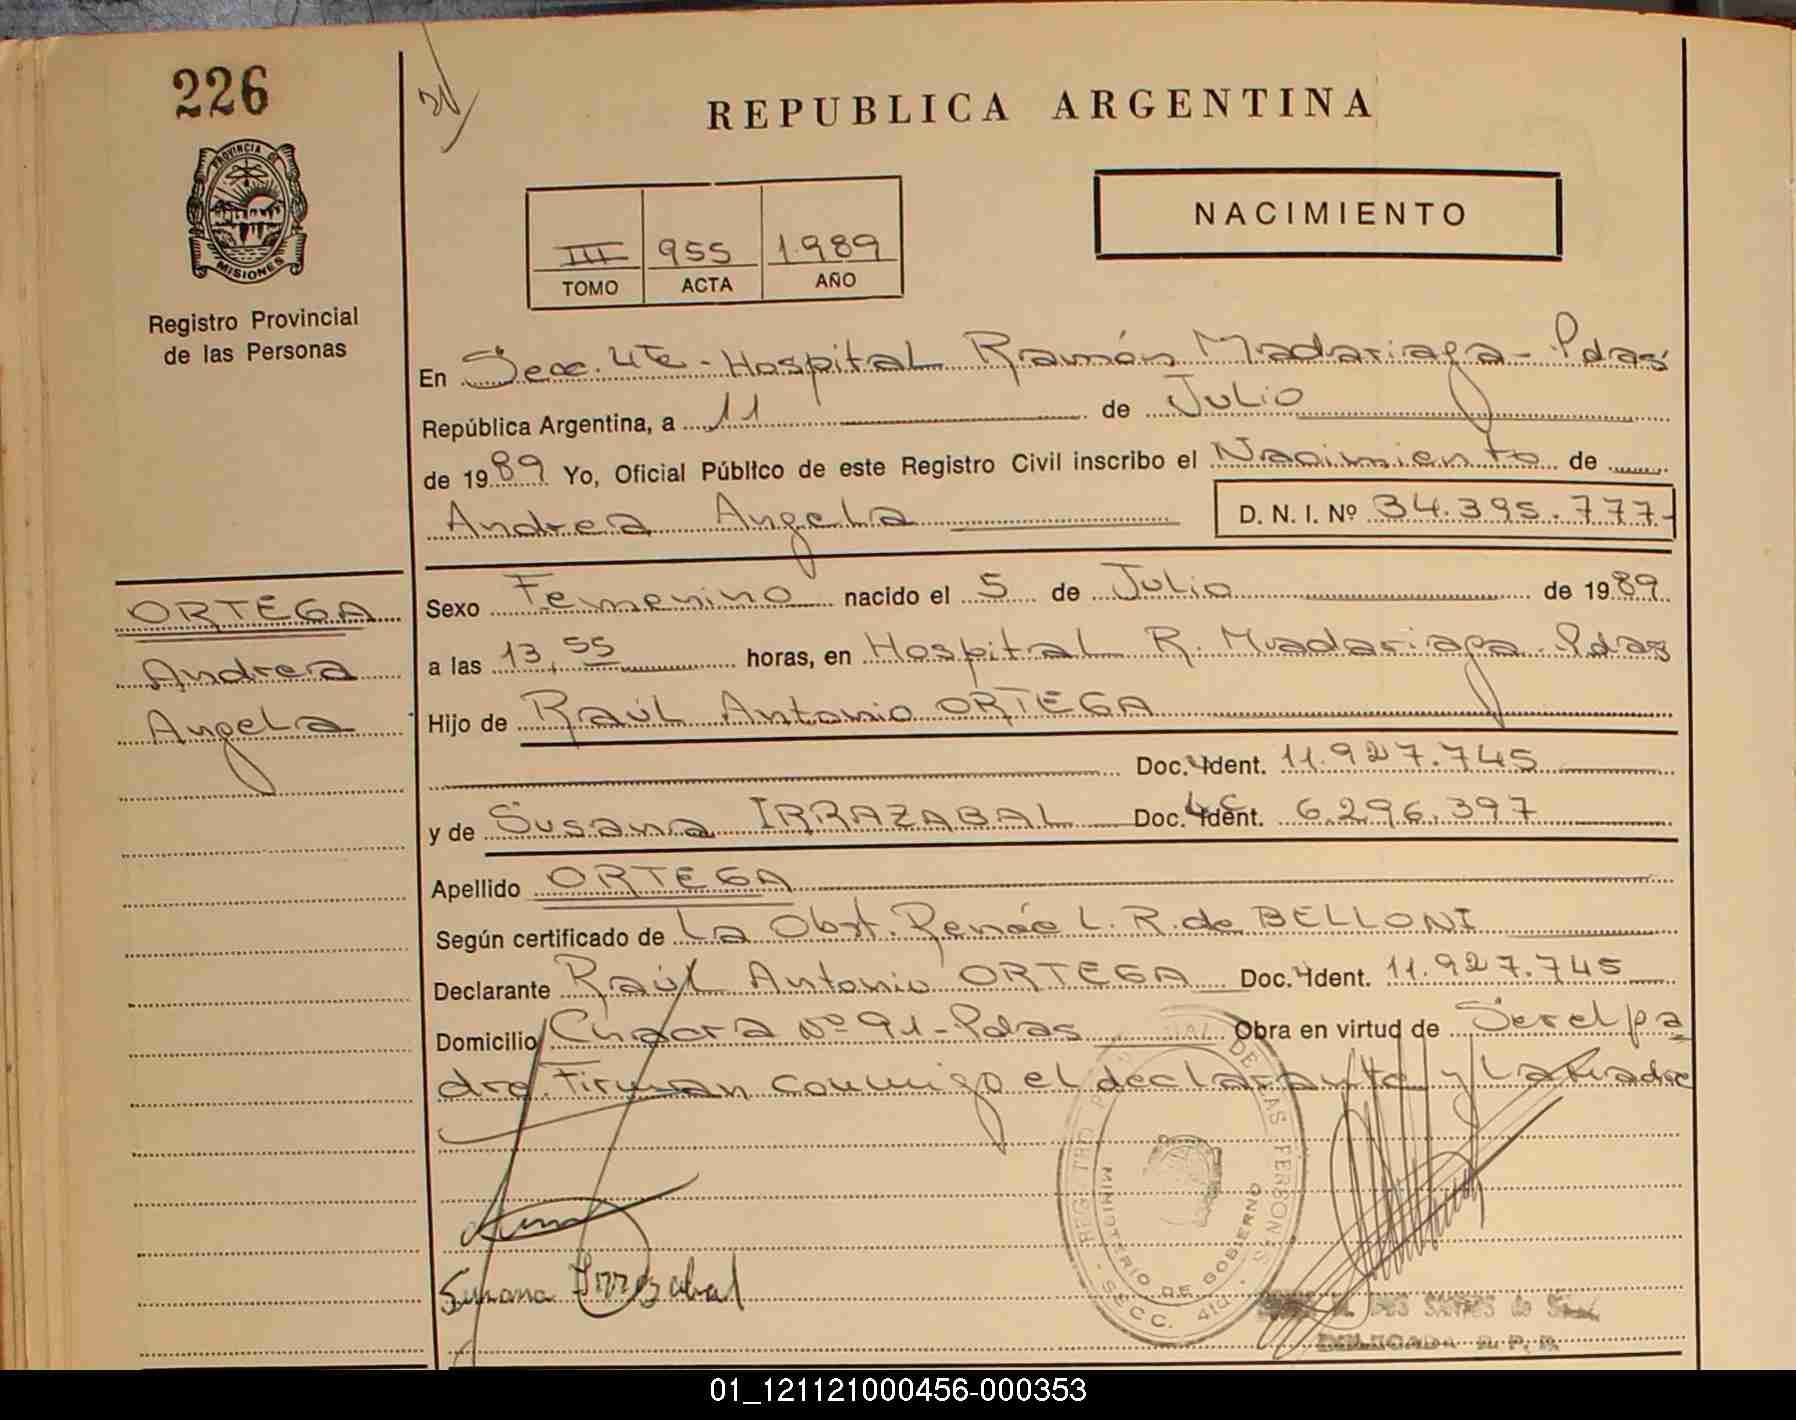 226
REPUBLICA ARGENTINA
PROVINCIA DE
MISIONES
Registro Provincial
de las Personas
III 955 1989
TOMO ACTA AÑO
NACIMIENTO
En Secc. 4ta - Hospital Ramón Madariaga - Pdas
República Argentina, a 11 de Julio
de 1989 Yo, Oficial Público de este Registro Civil inscribo el Nacimiento de
Andrea Angela D. N. I. Nº 34.395.777-
ORTEGA
Andrea
Angela
Sexo Femenino nacido el 5 de Julio de 1989
a las 13,55 horas, en Hospital R. Madariaga - Pdas
Hijo de Raúl Antonio ORTEGA
Doc. Ident. 11.927.745
y de Susana IRRAZABAL Doc. Ident. 6.296.397
Apellido ORTEGA
Según certificado de La Obst. Renée L. R. de BELLONI
Declarante Raúl Antonio ORTEGA Doc. Ident. 11.927.745
Domicilio Chacra Nº 91 - Pdas Obra en virtud de Ser el pa
dre. Firman conmigo el declarante y La Madre
DE LAS PERSONAS
MINISTERIO DE GOBIERNO
SECC. 4ta.
Susana Irrazabal
DOS SANTOS de
DELEGADA R. P. P.
01_121121000456-000353